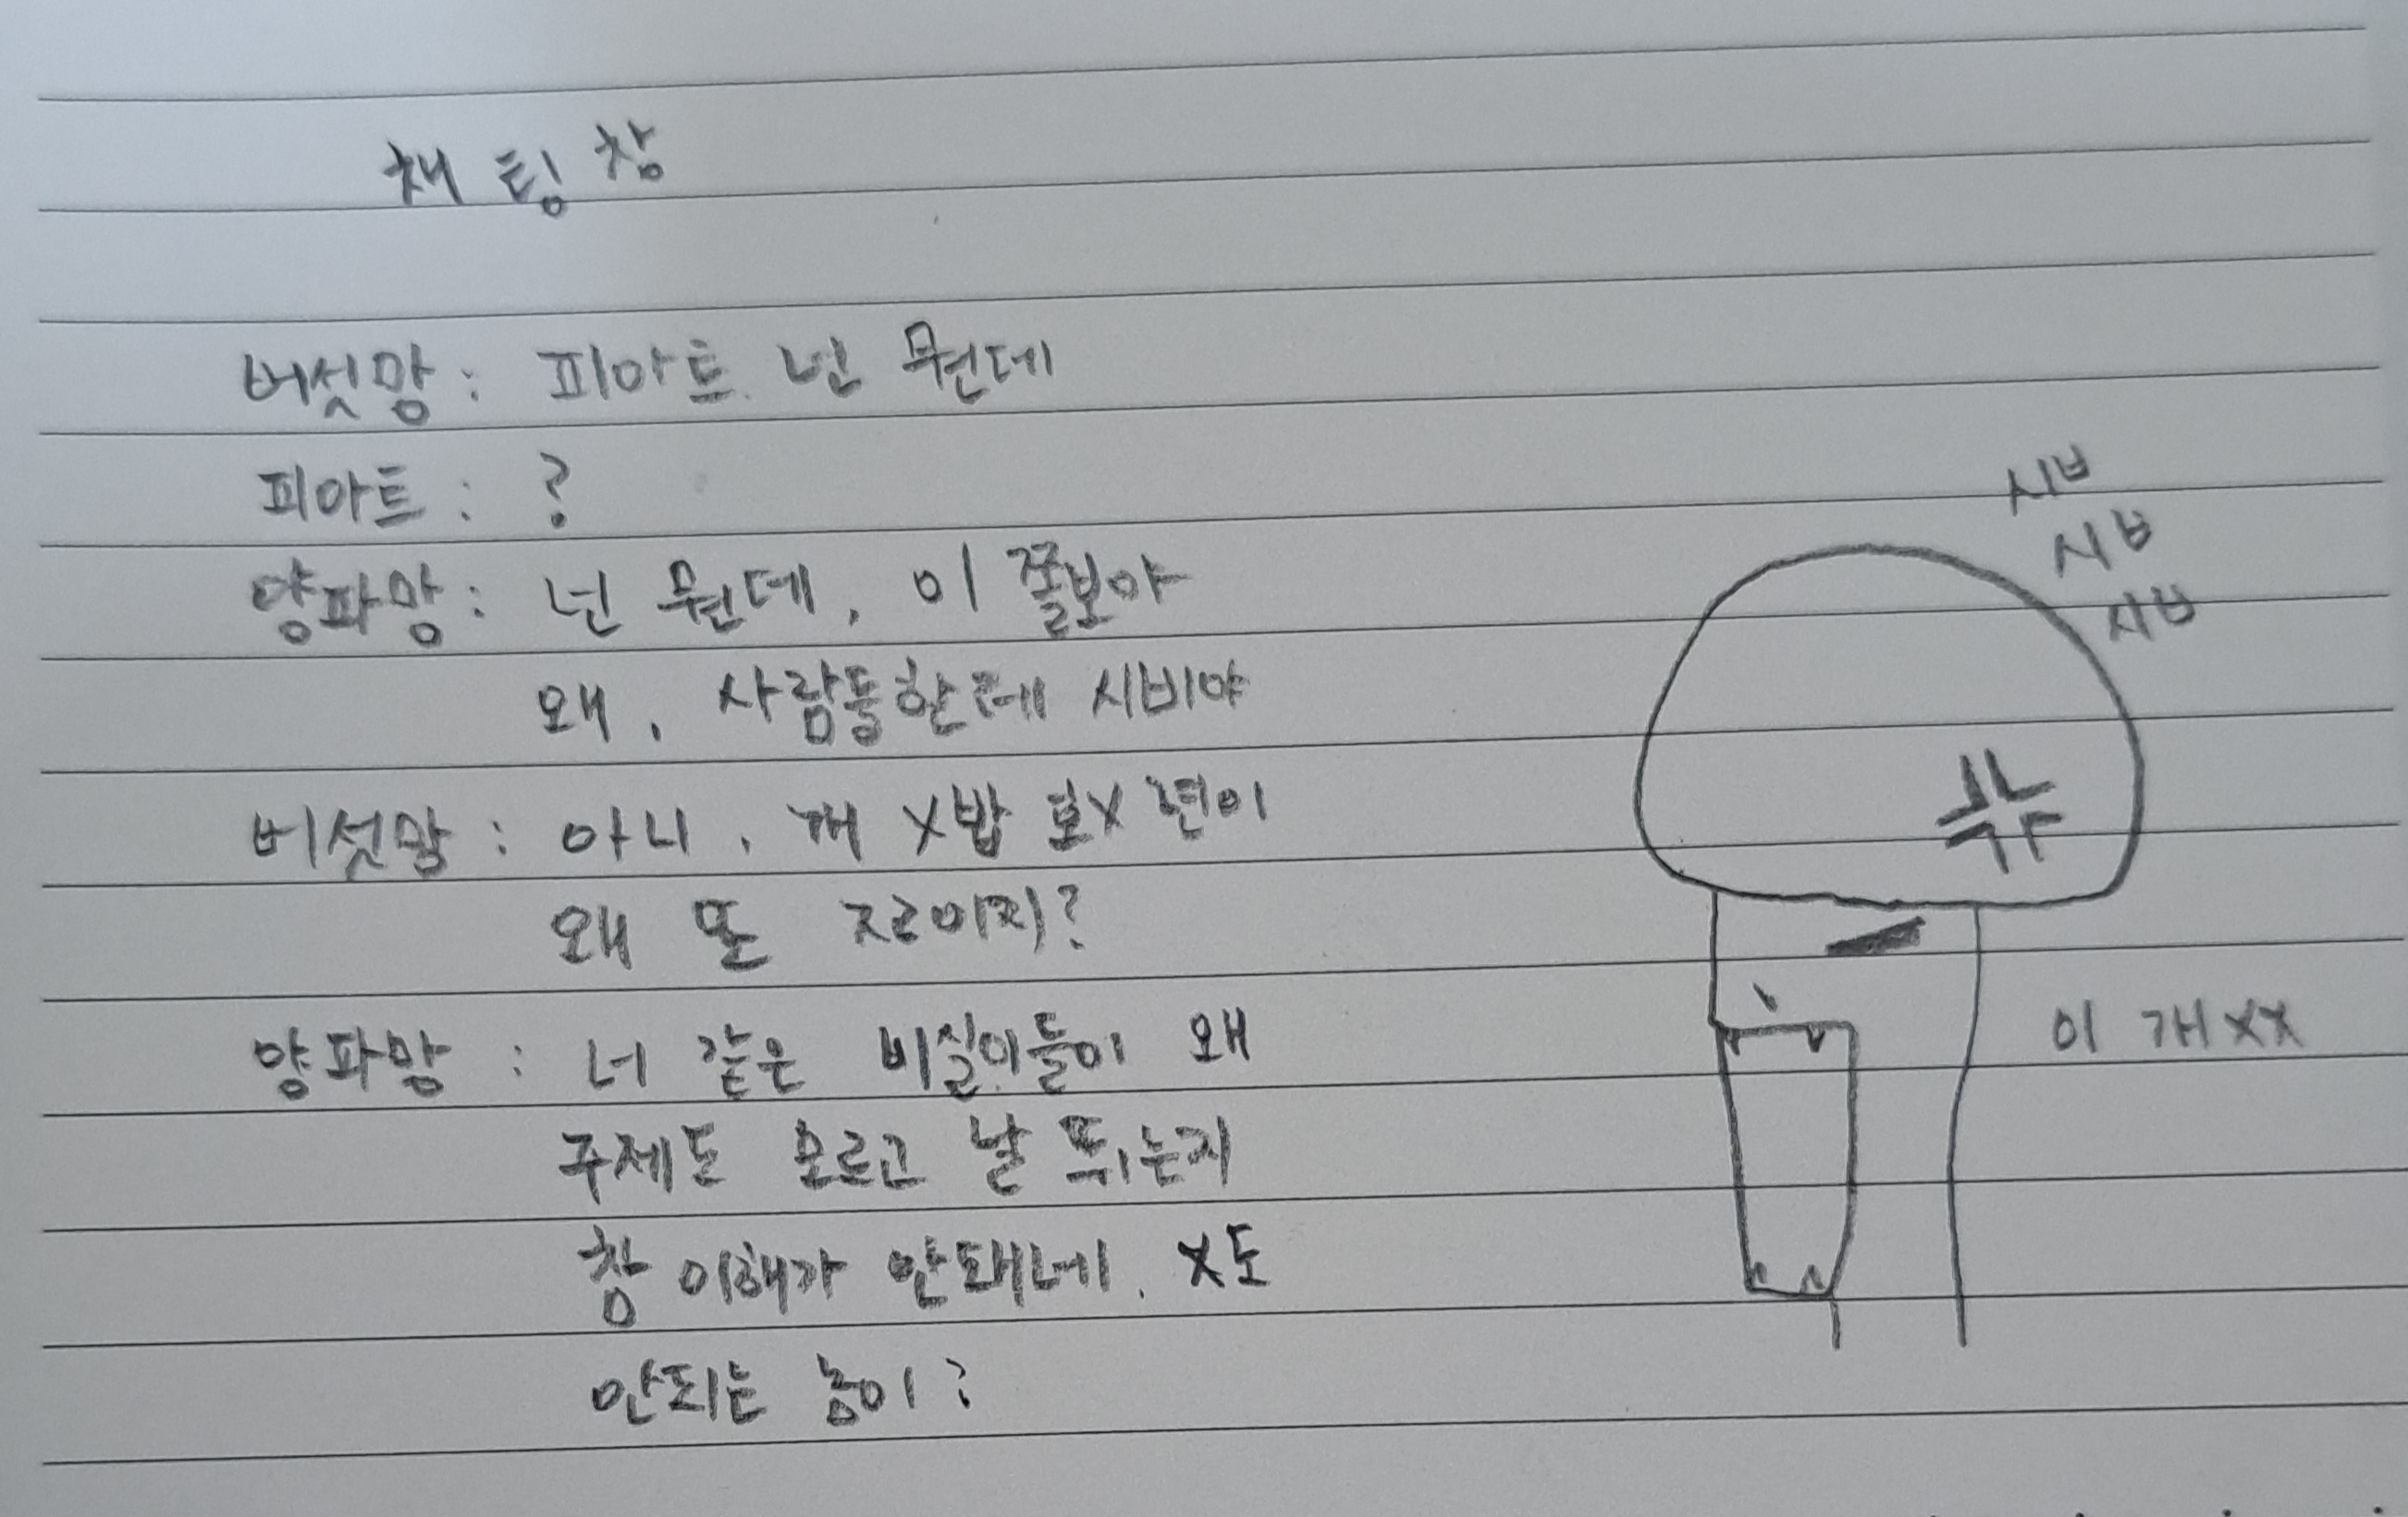 채팅창
버섯망: 피아트 넌 뭔데
피아트: ?
양파망: 넌 뭔데, 이 쫄보야
왜, 사람들한테 시비야
시ㅂ
시ㅂ
시ㅂ
버섯망: 아니, 개 X밥 보X 련이
왜 또 ㅈㄹ이지?
양파망: 너 같은 비실이들이 왜
이 개XX
주제도 모르고 날 뛰는지
참 이해가 안돼네. X도
안되는 놈이?